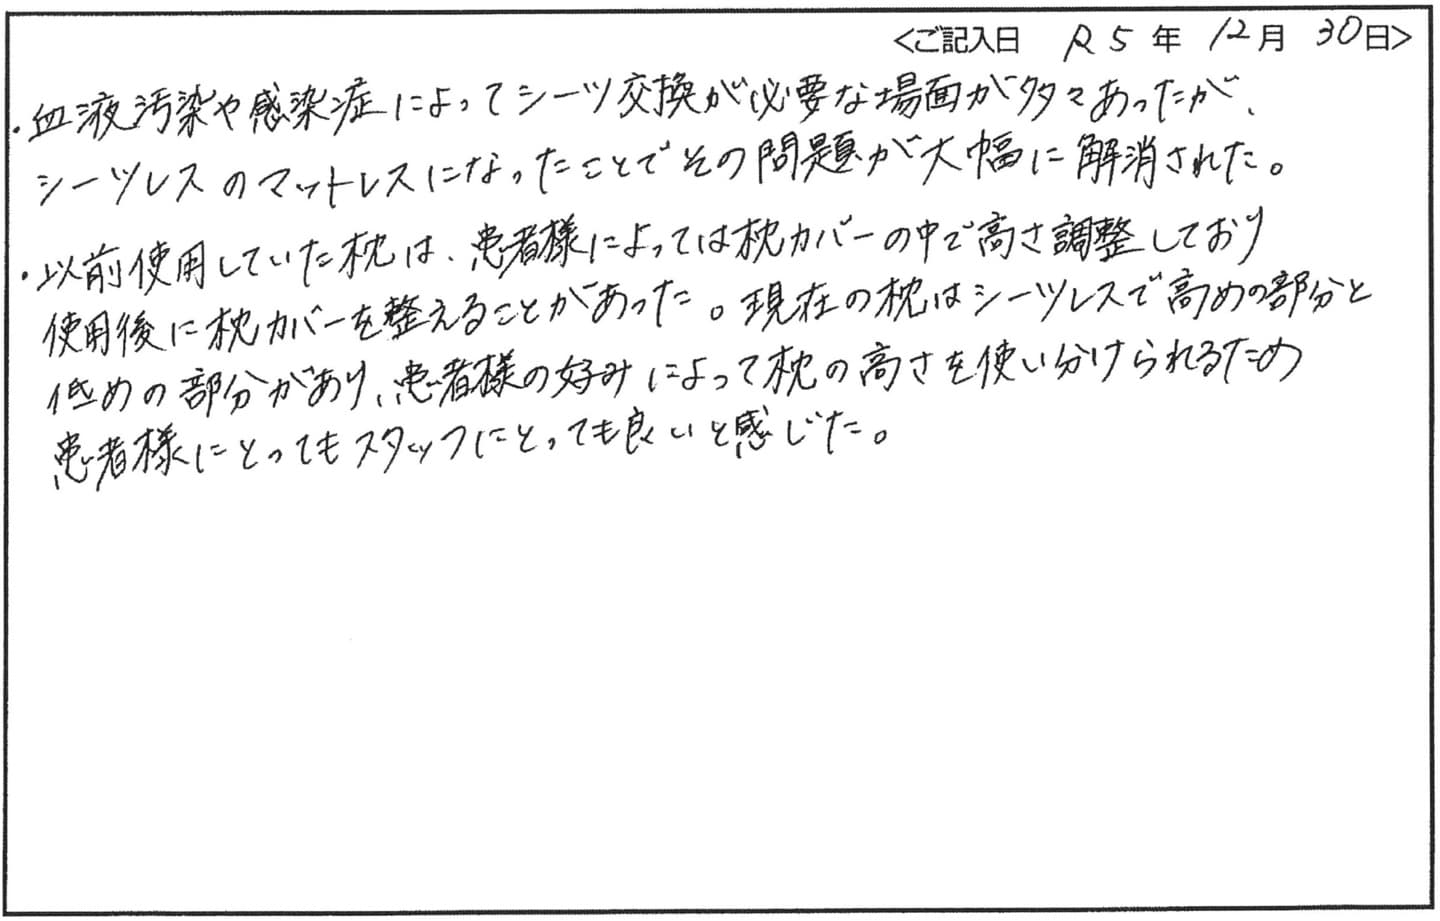 <ご記入日 R5年 12月 30日>
・血液汚染や感染症によってシーツ交換が必要な場面が多々あったが、
シーツレスのマットレスになったことでその問題が大幅に解消された。
・以前使用していた枕は、患者様によっては枕カバーの中で高さ調整しており
使用後に枕カバーを整えることがあった。現在の枕はシーツレスで高めの部分と
低めの部分があり、患者様の好みによって枕の高さを使い分けられるため
患者様にとってもスタッフにとっても良いと感じた。